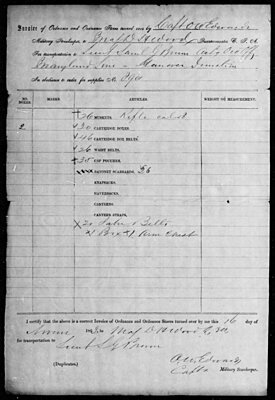 Invoice of Ordnance and Ordnance Stores turned over by Capt O W Edwards
Military Storekeeper, to Maj D H Wood Quartermaster C. S. A.
For transportation to Lieut Saml Y Brown
Maryland Line Hanover Junction
In obedience to order for supplies No.
NO. BOXES. MARKS. ARTICLES. WEIGHT OR MEASUREMENT.
26 MUSKETS, Rifle calbr
2 30 CARTRIDGE BOXES
CARTRIDGE BOX BELTS,
26 WAIST BELTS,
CAP POUCHES,
BAYONET SCABBARDS, 26
KNAPSACKS,
HAVERSACKS,
CANTEENS,
CANTEEN STRAPS,
Belts
Box Arm Chest
I certify that the above is a correct Invoice of Ordnance and Ordnance Stores turned over by me this 16 day of
186 to Maj D H Wood
for transportation to Lieut S Y Brown
(Duplicates.) O W Edwards
Capt Military Storekeeper.